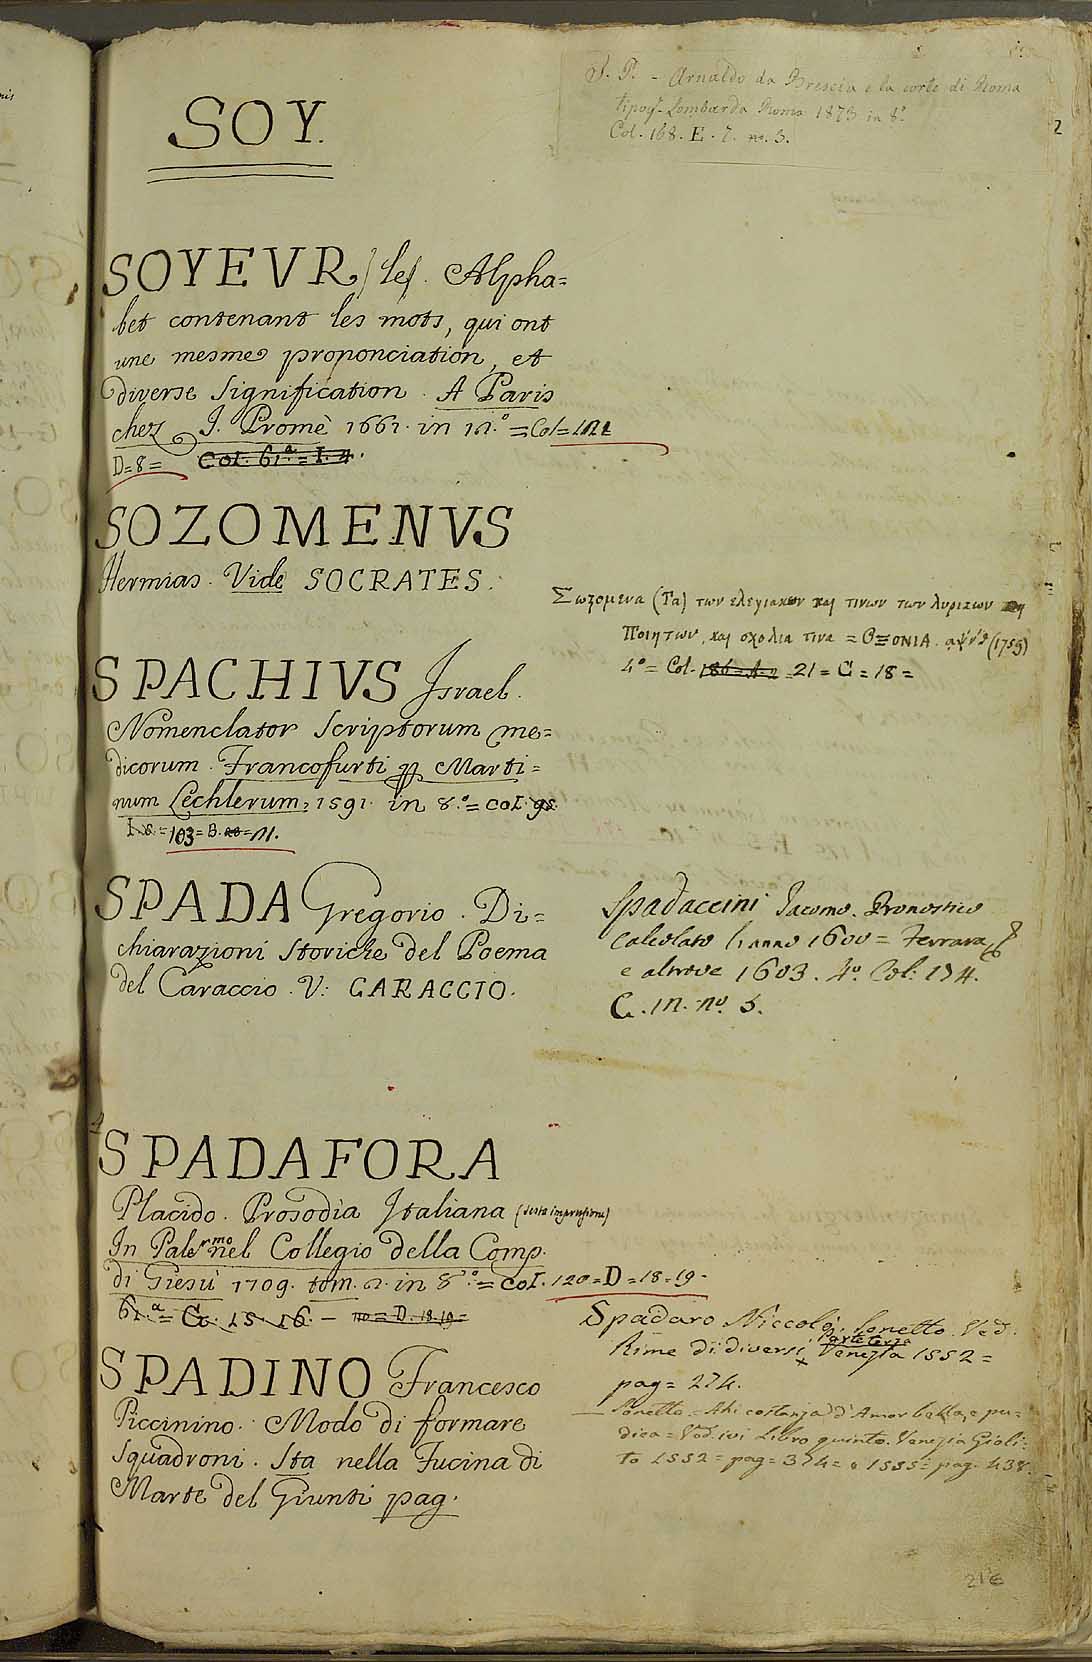 S. P. - Arnaldo da Brescia e la corte di Roma
tipogr. Lombarda Roma 1873 in 8.º
Col. 168. E. 7. no. 3.
2
SOY.
SOYEVR, les. Alpha=
bet contenant les mots, qui ont
une mesme prononciation, et
diverse signification. A Paris
chez J. Promè 1661. in 12.º = Col = 121
D = 8 = Col. 61.ª = I. 4.
SOZOMENVS
Hermias. Vide SOCRATES.
Σωζομενα (Τα) των ελεγιακων και τινων των λυρικων
Ποιητων, και σχολια τινα = ΟΞΟΝΙΑ. αψνθ (1759)
4º = Col. 186 = A = 21 = C = 18 =
SPACHIVS Israel.
Nomenclator Scriptorum me=
dicorum. Francofurti p Marti=
num Lechlerum, 1591. in 8.º = Col. 92
I. 8. = 103 = B. 20 = 11.
SPADA Gregorio. Di=
chiarazioni Storiche del Poema
del Caraccio. V: CARACCIO.
Spadaccini Jacomo. Pronostico
calcolato l'anno 1600 = Ferrara,
e altrove 1603. 4º. Col: 134.
C. 12. nº. 5.
SPADAFORA
Placido. Prosodia Italiana (sesta impressione)
In Paler.mo nel Collegio della Comp.
di Giesù 1709. tom. 2. in 8.º = Col. 120 = D = 18 = 19 -
61.ª = G. 15. 16. - 110 = D. 18. 19 =
Spadaro Niccolò. Sonetto. Ved.
Rime di diversi, Parte terza Venezia 1552 =
pag = 274.
SPADINO Francesco
Piccinino. Modo di formare
Squadroni. Sta nella Fucina di
Marte del Giunti pag.
— Sonetto = Ahi costanza d'Amor bella, e pu=
dica = Ved. ivi Libro quinto. Venezia Gioli=
to 1552 = pag = 374 = e 1555 = pag. 438.
216